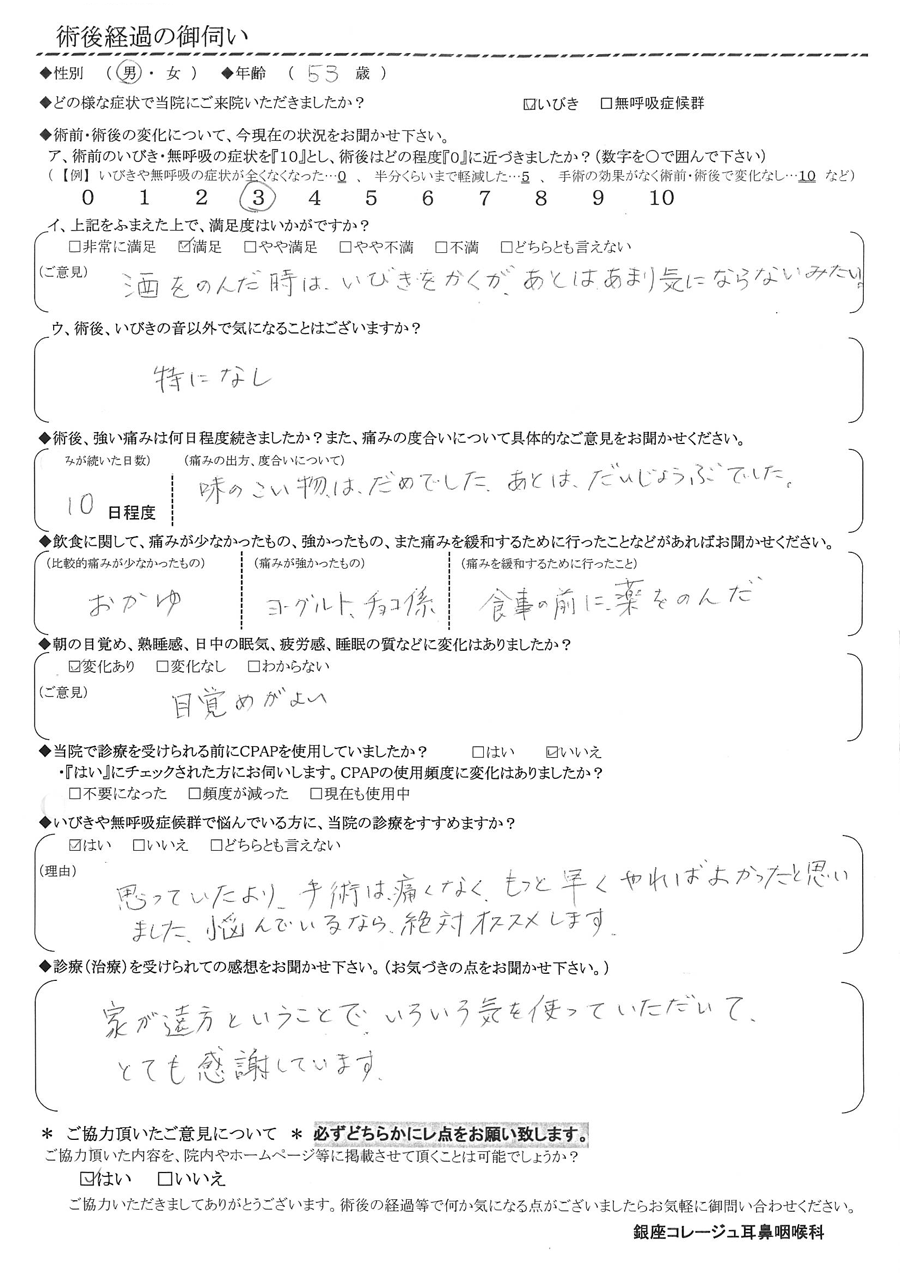 術後経過の御伺い
◆性別 （ 男 ・ 女 ） ◆年齢 （ 53 歳 ）
◆どの様な症状で当院にご来院いただきましたか？ ☑いびき □無呼吸症候群
◆術前・術後の変化について、今現在の状況をお聞かせ下さい。
ア、術前のいびき・無呼吸の症状を『10』とし、術後はどの程度『0』に近づきましたか？（数字を〇で囲んで下さい）
（ 【例】 いびきや無呼吸の症状が全くなくなった…0 、 半分くらいまで軽減した…5 、 手術の効果がなく術前・術後で変化なし…10 など）
0 1 2 3 4 5 6 7 8 9 10
イ、上記をふまえた上で、満足度はいかがですか？
□非常に満足 ☑満足 □やや満足 □やや不満 □不満 □どちらとも言えない
（ご意見） 酒をのんだ時は、いびきをかくが、あとはあまり気にならないみたい。
ウ、術後、いびきの音以外で気になることはございますか？
特になし
◆術後、強い痛みは何日程度続きましたか？また、痛みの度合いについて具体的なご意見をお聞かせください。
みが続いた日数） （痛みの出方、度合いについて）
味のこい物は、だめでした、あとは、だいじょうぶでした。
10 日程度
◆飲食に関して、痛みが少なかったもの、強かったもの、また痛みを緩和するために行ったことなどがあればお聞かせください。
（比較的痛みが少なかったもの） （痛みが強かったもの） （痛みを緩和するために行ったこと）
おかゆ ヨーグルト、チョコ係 食事の前に、薬をのんだ
◆朝の目覚め、熟睡感、日中の眠気、疲労感、睡眠の質などに変化はありましたか？
☑変化あり □変化なし □わからない
（ご意見） 目覚めがよい
◆当院で診療を受けられる前にCPAPを使用していましたか？ □はい ☑いいえ
・『はい』にチェックされた方にお伺いします。CPAPの使用頻度に変化はありましたか？
□不要になった □頻度が減った □現在も使用中
◆いびきや無呼吸症候群で悩んでいる方に、当院の診療をすすめますか？
☑はい □いいえ □どちらとも言えない
（理由） 思っていたより、手術は、痛くなく、もっと早くやればよかったと思い
ました、悩んでいるなら、絶対オススメします。
◆診療（治療）を受けられての感想をお聞かせ下さい。（お気づきの点をお聞かせ下さい。）
家が遠方ということで、いろいろ気を使っていただいて、
とても感謝しています。
＊ ご協力頂いたご意見について ＊ 必ずどちらかにレ点をお願い致します。
ご協力頂いた内容を、院内やホームページ等に掲載させて頂くことは可能でしょうか？
☑はい □いいえ
ご協力いただきましてありがとうございます。術後の経過等で何か気になる点がございましたらお気軽に御問い合わせください。
銀座コレージュ耳鼻咽喉科